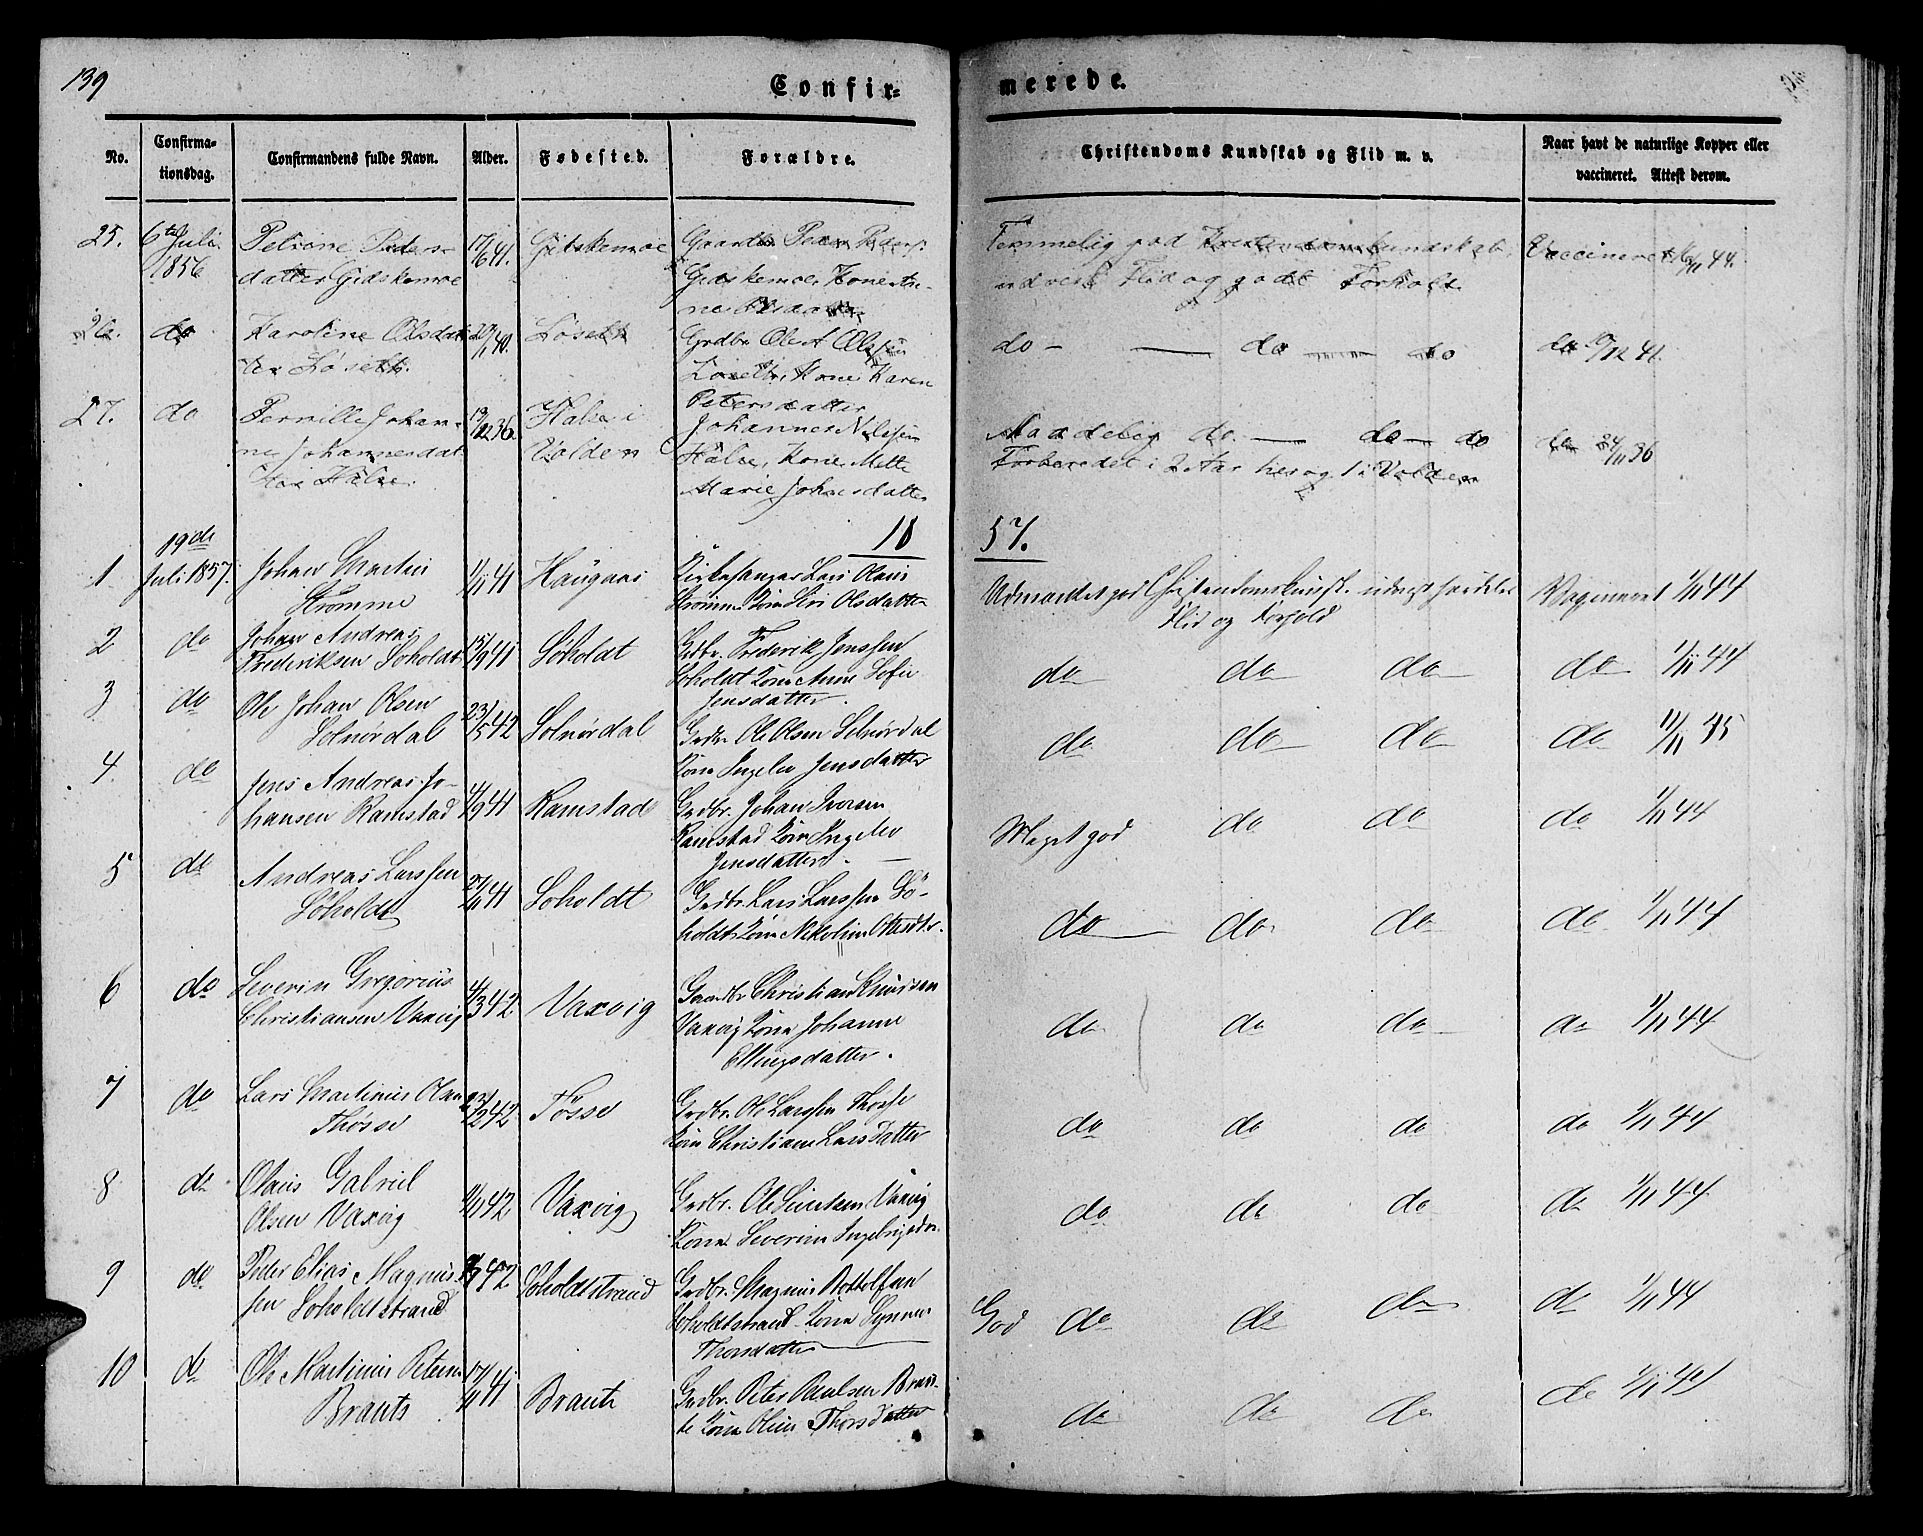 139
Confir-
merede.
No.
Confirma-
tionsdag.
Confirmandens fulde Navn.
Alder.
Fødested.
Forældre.
Christendoms Kundskab og Flid m. v.
Naar havt de naturlige Kopper eller
vaccineret. Attest derom.
25. 6te Juli 1856
Petrine Peders-
datter Gidskemoe
17/6 41. Gidskemoe
Gaardbr Peder Peders.
Gidskemoe, Kone An-
ne
Temmelig god Kristendomskundskab,
udvist Flid og godt Forhold.
Vaccineret 44.
26. do
Karoline Olsdat-
ter Løseth.
40. Løseth
Grdbr Ole A Olsen
Løseth, Kone Karen
Petersdatter
do - do do
do /12 41.
27. do
Pernille Johan-
ne Johannesdat-
ter Halse.
13/12 36. Halse i
Volden
Johannes Nilsen
Halse, Kone Mette
Marie Johnsdatter
Maadelig do. - do - do
Forberedet i 2 Aar her og 1 i Volden
do 24/11 36
18 57.
1 19de
Juli 1857.
Johan Martin
Strømme
1/11 41 Haugaas
Kirkesanger Lars Olaus
Strømme Kone Siri Olsdatter
Udmærket god Christendomskundsk. udvist særdeles
Flid og Forhold
Vagineret 1/11 44
2 do
Johan Andreas
Frederiksen Soholdt
15/9 41 Soholdt
Grdbr. Frederik Jenssen
Soholdt Kone Anne Sofie
Jensdatter.
do do do do 1/11 44
3 do
Ole Johan Olsen
Solnørdal
23/5 42 Solnørdal
Grdbr Ole Olsen Solnørdal
Kone Ingelev Jensdatter
do do do do 11/11 45
4. do
Jens Andreas Jo-
hansen Ramstad
4/9 41 Ramstad
Grdbr. Johan Iversen
Ramstad Kone Ingelev
Jensdatter. -
Meget god do do do 1/11 44
5 do
Andreas Larssen
Søholdt
27/11 41 Soholdt
Grdbr. Lars Larssen Sö-
holdt, Kone Nikoline Ottesdtr.
do do do do 1/11 44
6 do
Severin Gregorius
Christiansen Vaxvig
4/3 42 Vaxvig
Gaardbr Christian Knudsen
Vaxvig Kone Johanne
Ellingsdatter.
do do do do 1/11 44
7 do
Lars Martinius Olsen
Thøsse
22/2 42 Føsse
Grdbr. Ole Larssen Thøsse
Kone Christiane Larsdatter
do do do do 1/11 44
8 do
Olaus Gabriel
Olsen Vaxvig
1/11 42 Vaxvig
Grdbr. Ole Sivertsen Vaxvig
Kone Severine Ingebrigsdtr.
do do do do 1/11 44
9 do
Peder Elias Magnus-
sen Soholdtstrand
42 Soholdtstrand
Grdbr. Magnus Bottolfsen
Soholdtstrand Kone Synnev
Thorsdatter
God do do do do 1/11 44
10 do
Ole Martinus Petersen
Braute
17/11 41 Braute
Grdbr. Peter Paulsen Brau-
te Kone Oline Thorsdatter
do do do do 1/11 49